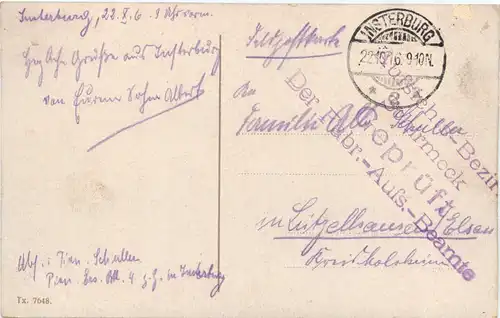 Insterburg, 22.X.6. 9 Uhr vorm.
Herzliche Grüße aus Insterburg
von Eurem Sohn Albert
Abs.: Pion. Schuller
Pion. Ers. Btl. 4. z.Z. in Insterburg
Tx. 7648.
Feldpostkarte
INSTERBURG
22.10.16. 9-10 V.
An
Familie Schuller
in Lützelhausen, Elsass
Kreis Molsheim
Bezirk
Schirmeck
Geprüft
Der Aufs.-Beamte